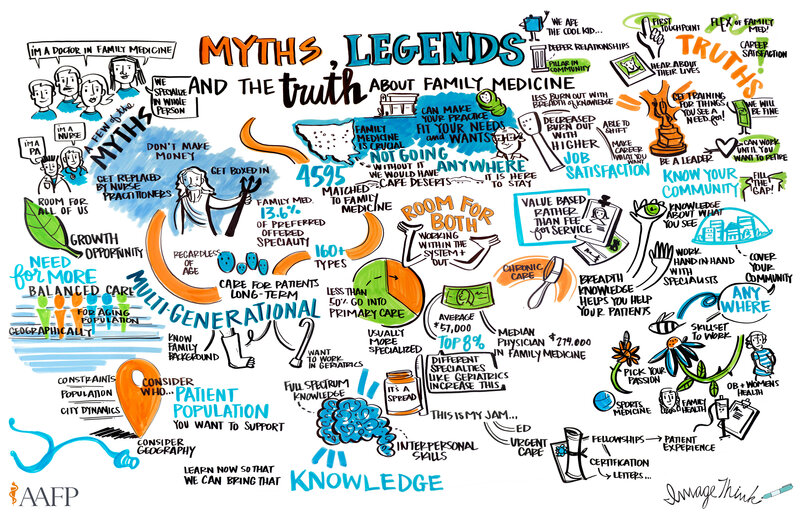 MYTHS, LEGENDS
AND THE truth ABOUT FAMILY MEDICINE
I'M A DOCTOR IN FAMILY MEDICINE
WE
SPECIALIZE
IN WHOLE
PERSON
I'M A
PA
I'M A
NURSE
A FEW of the
MYTHS
ROOM FOR
ALL OF US
DON'T MAKE
MONEY
GET REPLACED
BY NURSE
PRACTITIONERS
GET BOXED IN
GROWTH
OPPORTUNITY
NEED
for MORE
BALANCED CARE
FOR AGING
POPULATION
GEOGRAPHICALLY
FAMILY
MEDICINE
IS CRUCIAL
CAN MAKE
YOUR PRACTICE
FIT YOUR NEEDS
and WANTS
NOT GOING ANYWHERE
WITHOUT IT
WE WOULD HAVE
CARE DESERTS
IT IS HERE
TO STAY
4595
MATCHED
TO FAMILY
MEDICINE
FAMILY MED.
13.6%
OF PREFERRED
OFFERED
SPECIALTY
160+
TYPES
REGARDLESS
OF
AGE
CARE FOR PATIENTS
LONG-TERM
MULTI-GENERATIONAL
KNOW
FAMILY
BACKGROUND
WANT
TO WORK
IN GERIATRICS
ROOM FOR
BOTH
WORKING
WITHIN THE
SYSTEM +
OUT
LESS THAN
50% GO INTO
PRIMARY CARE
USUALLY
MORE
SPECIALIZED
AVERAGE
$57,000
TOP 8%
MEDIAN
PHYSICIAN $274.000
IN FAMILY MEDICINE
DIFFERENT
SPECIALTIES
LIKE GERIATRICS
INCREASE THIS
IT'S A
SPREAD
WE ARE
THE COOL KID...
DEEPER RELATIONSHIPS
PILLAR IN
COMMUNITY
LESS BURN OUT WITH
BREADTH of KNOWLEDGE
DECREASED
BURN OUT
WITH
HIGHER
JOB
SATISFACTION
ABLE TO
SHIFT
MAKE
CAREER
WHAT YOU
WANT
FIRST
TOUCHPOINT
FLEX of FAMILY
MED!
CAREER
SATISFACTION
TRUTHS
HEAR ABOUT
THEIR LIVES
GET TRAINING
FOR THINGS
YOU SEE A
NEED for!
WE WILL
BE FINE
BE A LEADER
CAN WORK
UNTIL YOU
WANT TO RETIRE
KNOW YOUR
COMMUNITY
FILL
THE
GAP!
VALUE BASED
RATHER
THAN FEE
for SERVICE
KNOWLEDGE
ABOUT WHAT
YOU SEE
CHRONIC
CARE
BREADTH
KNOWLEDGE
HELPS YOU HELP
YOUR PATIENTS
WORK
HAND-IN-HAND
WITH
SPECIALISTS
COVER
YOUR
COMMUNITY
ANY
WHERE
SKILLSET
TO WORK
PICK YOUR
PASSION
SPORTS
MEDICINE
FAMILY
HEALTH
OB + WOMENS
HEALTH
CONSTRAINTS
POPULATION
CITY DYNAMICS
CONSIDER
WHO...
PATIENT
POPULATION
YOU WANT TO SUPPORT
CONSIDER
GEOGRAPHY
FULL SPECTRUM
KNOWLEDGE
INTERPERSONAL
SKILLS
THIS IS MY JAM...
ED
URGENT
CARE
FELLOWSHIPS
PATIENT
EXPERIENCE
CERTIFICATION
LETTERS...
LEARN NOW SO THAT
WE CAN BRING THAT
KNOWLEDGE
AAFP
ImageThink